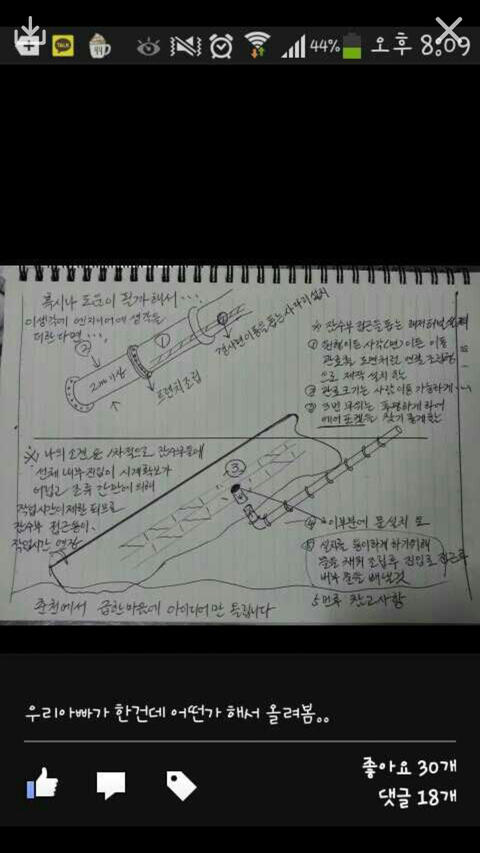 TALK
44%
오후 8:09
혹시나 도움이 될까해서...
이생각에 엔지니어에 생각을
더한다면...
경사면이동을 돕는 사다리설치
①
②
2m이상
프렌치조립
※ 잠수부 접근을 돕는
① 원형이든 사각(면)이든 이동
관로를 도면처럼 연결 조립형
으로 제작 설치 또는
② 관로크기는 사람 이동 가능하게
③ 3번 부위는 하여
에어포켓을 찾기 좋게함
※ 나의 소견은 1차적으로 잠수부들에
선체 내부진입이 시계확보가
어렵고 조류 간만에 의해
작업시간이 제한 되므로
잠수부 접근용이
작업시간 연장
③
④ 이부분에 문설치 또
⑤ 설치를 용이하게 하기위해
물을 채워 조립후 진입로 접근후
내부 물을 빼낼것
5번류 참고사항
춘천에서 급한마음에 아이디어만 올립니다
우리아빠가 한건데 어떤가 해서 올려봄..
좋아요 30개
댓글 18개